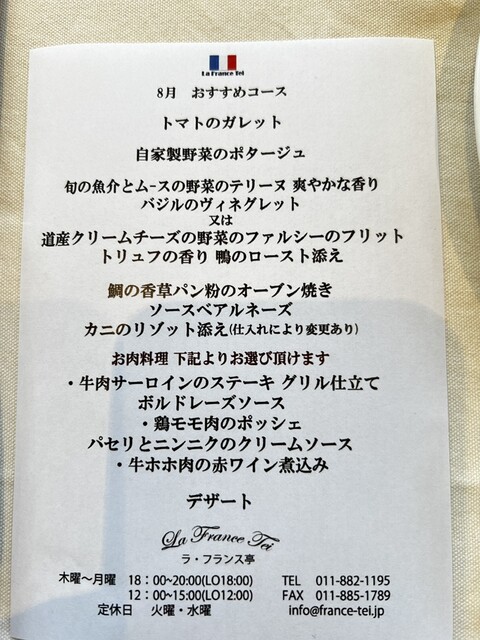 La France Tei
8月 おすすめコース
トマトのガレット
自家製野菜のポタージュ
旬の魚介とムースの野菜のテリーヌ 爽やかな香り
バジルのヴィネグレット
又は
道産クリームチーズの野菜のファルシーのフリット
トリュフの香り 鴨のロースト添え
鯛の香草パン粉のオーブン焼き
ソースベアルネーズ
カニのリゾット添え(仕入れにより変更あり)
お肉料理 下記よりお選び頂けます
・牛肉サーロインのステーキ グリル仕立て
ボルドレーズソース
・鶏モモ肉のポッシェ
パセリとニンニクのクリームソース
・牛ホホ肉の赤ワイン煮込み
デザート
La France Tei
ラ・フランス亭
木曜～月曜 18：00~20:00(LO18:00) TEL 011-882-1195
12：00~15:00(LO12:00) FAX 011-885-1789
定休日 火曜・水曜 info@france-tei.jp